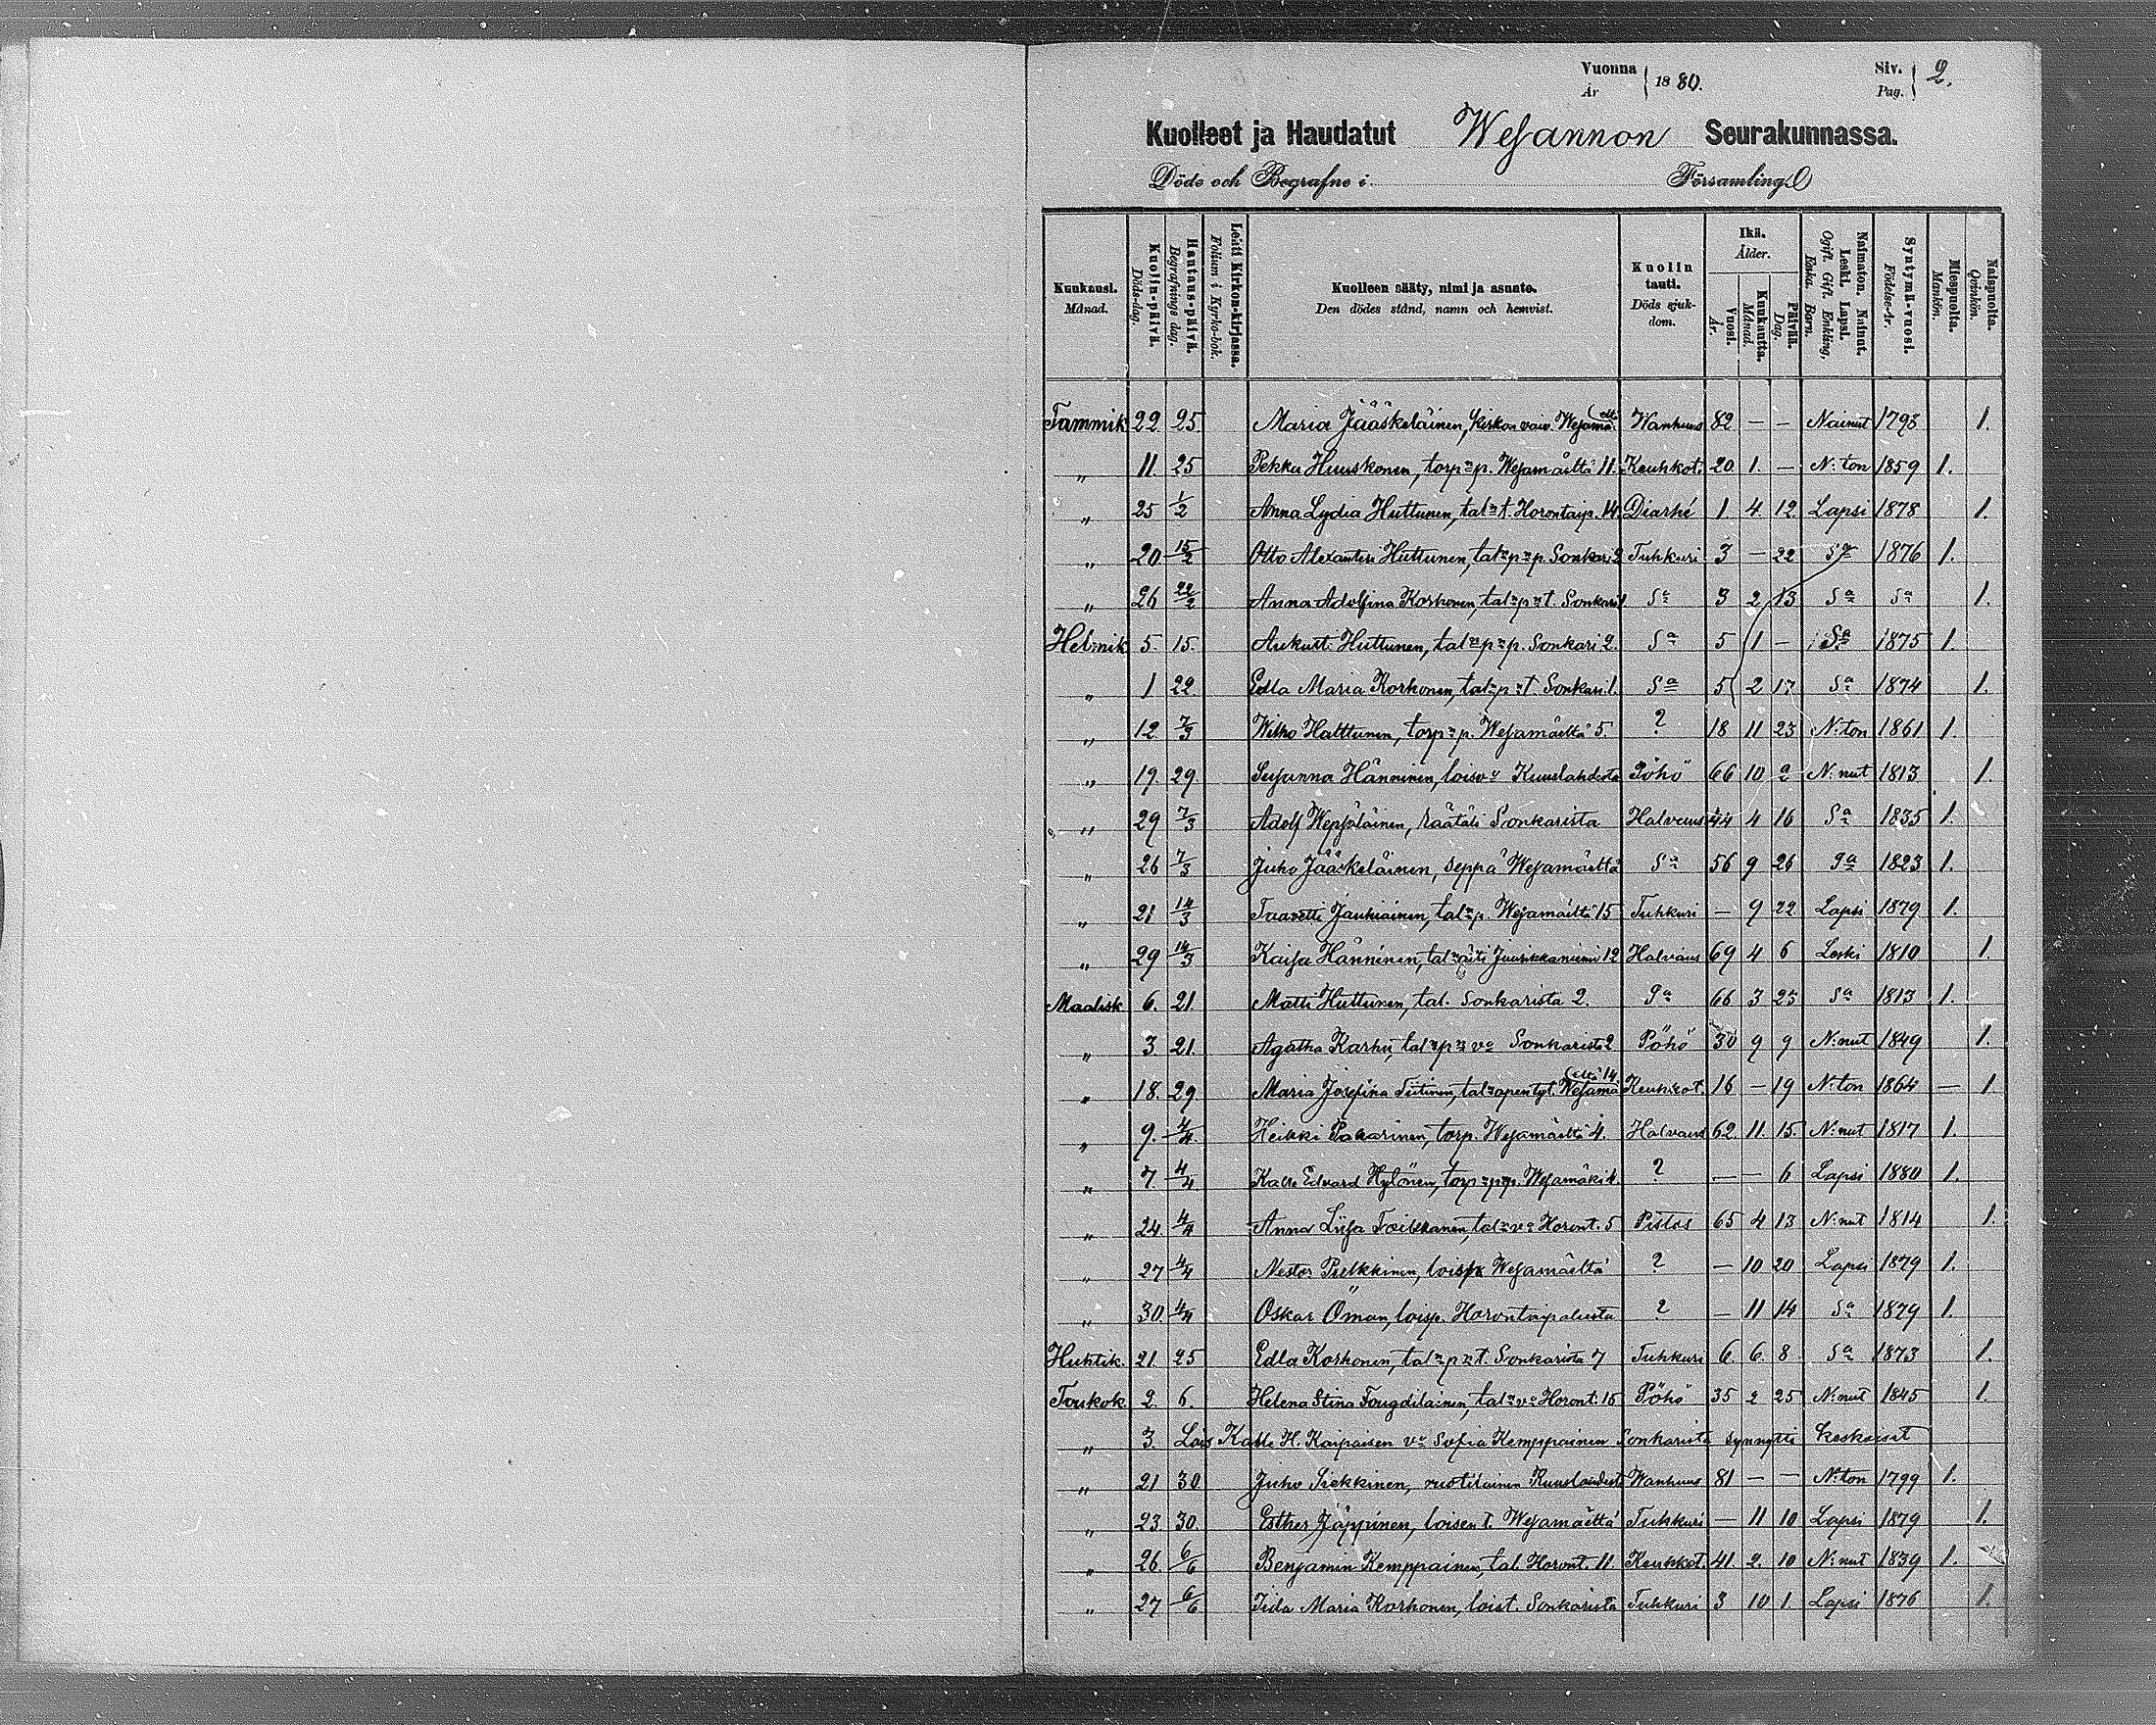 Vuonna 1880. Siv. 2.
År Pag.
Kuolleet ja Haudatut Wesannon Seurakunnassa.
Döde och Begrafne i Församling
Kuukausi. Månad.
Kuolin-päivä. Döds-dag.
Hautaus-päivä. Begrafnings dag.
Lehti Kirkon-kirjassa. Folium i Kyrko-bok.
Kuolleen sääty, nimi ja asunto. Den dödes stånd, namn och hemvist.
Kuolin tauti. Döds sjukdom.
Ikä. Ålder.
Vuosi. År.
Kuukautta. Månad.
Päivää. Dag.
Naimaton. Nainut. Leski. Lapsi. Ogift. Gift. Enkling, Enka. Barn.
Syntymä-vuosi. Födelse-år.
Miespuolta. Mankön.
Naispuolta. Qvinkön.
Tammik 22 25. Maria Jääskeläinen, kirkon vaiv. Wesamä(eltä Wanhuus 82 — — Nainut 1798 1.
„ 11 25 Pekka Huuskonen, torp:n p. Wesamäeltä 11. Keuhkot. 20 1. — N:ton 1859 1.
„ 25 1/2 Anna Lydia Huttunen, tal:n t. Horontaip. 14. Diarhé 1. 4. 12. Lapsi 1878 1.
„ 20 15/2 Otto Alexanteri Huttunen, tal:n p:n p. Sonkari 2 Tuhkuri 3 — 22 Sa 1876 1.
„ 26 22/2 Anna Adolfina Korhonen, tal:n p:n t. Sonkari 1. Sa 3 2 13 Sa Sa 1.
Helmik 5. 15. Aukusti Huttunen, tal:n p:n p. Sonkari 2. Sa 5 1 — Sa 1875 1.
„ 1 22 Edla Maria Korhonen, tal:n p:n t Sonkari 1. Sa 5 2 17 Sa 1874 1.
„ 12 7/3 Wilho Halttunen, torp:n p. Wesamäeltä 5. ? 18 11 23 N:ton 1861 1.
„ 19. 29. Susanna Hänninen, lois v:o Kuuslahdesta Pöhö 66 10 2 N:nut 1813 1.
„ 29 7/3 Adolf Wepsäläinen, räätäli Sonkarista Halvaus 44 4 16 Sa 1835 1.
„ 26 7/3 Juho Jääskeläinen, seppä Wesamäeltä Sa 56 9 26 Sa 1823 1.
„ 21 14/3 Taavetti Jauhiainen, tal:n p. Wesamäeltä 15 Tuhkuri — 9 22 Lapsi 1879 1.
„ 29 14/3 Kaisa Hänninen, tal:n äiti Juurikkaniemi 12 Halvaus 69 4 6 Leski 1810 1.
Maalisk 6. 21. Matti Huttunen, tal. Sonkarista 2. Sa 66 3 25 Sa 1813 1.
„ 3 21. Agatha Karhu, tal:n p:n v:o Sonkarista 2 Pöhö 30 9 9 N:nut 1849 1.
„ 18. 29 Maria Josefina Tiitinen, tal:n apen tyt. Wesamä(eltä 14 Keuhkot. 16 — 19 N:ton 1864 — 1.
„ 9. 4/4. Heikki Pakarinen, torp. Wesamäeltä 4. Halvaus 62. 11. 15. N:nut 1817 1.
„ 7. 4/4 Kalle Edvard Hylönen, torp:n p:n p. Wesamäki 4. ? — — 6 Lapsi 1880 1.
„ 24. 4/4 Anna Liisa Toikkanen, tal:n v:o Horont. 5 Pistos 65 4 13 N:nut 1814 1.
„ 27 4/4 Nestor Pulkkinen, lois p. Wesamäeltä ? — 10 20 Lapsi 1879 1.
„ 30. 4/4 Oskar Öman, lois p. Horontaipaleesta ? — 11 14 Sa 1879 1.
Huhtik. 21. 25 Edla Korhonen, tal:n p:n t. Sonkarista 7 Tuhkuri 6. 6. 8 Sa 1873 1.
Toukok. 2. 6. Helena Stina Fougdilainen, tal:n v:o Horont. 15 Pöhö 35 2 25 N:nut 1845 1.
„ 3. Lois Kalle H. Kaipaisen v:o Sofia Kemppainen Sonkarista synnytti keskoiset
„ 21 30 Juho Siekkinen, ruotilainen Kuuslahdesta Wanhuus 81 — — N:ton 1799 1.
„ 23. 30. Esther Jäppinen, loisen t. Wesamäeltä Tuhkuri — 11 10 Lapsi 1879 1.
„ 26. 6/6 Benjamin Kemppainen, tal. Horont. 11. Keuhkot. 41. 2. 10 N:nut 1839 1.
„ 27 6/6 Iida Maria Korhonen, lois t. Sonkarista Tuhkuri 3 10 1. Lapsi 1876 1.